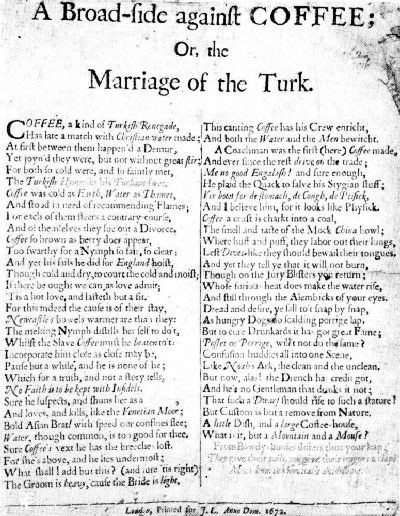 A Broad-ſide againſt COFFEE;
Or, the
Marriage of the Turk.
COFFEE, a kind of Turkiſh Renegade,
Has late a match with Chriſtian water made;
At firſt between them happen'd a Demur,
Yet joyn'd they were, but not without great ſtir;
For both ſo cold were, and ſo faintly met,
The Turkiſh Hymen in his Turbant ſwet.
Coffee was cold as Earth, Water as Thames,
And ſtood in need of recommending Flames;
For each of them ſteers a contrary courſe,
And of themſelves they ſue out a Divorce.
Coffee ſo brown as berry does appear,
Too ſwarthy for a Nymph ſo fair, ſo clear:
And yet his ſails he did for England hoiſt,
Though cold and dry, to court the cold and moiſt;
If there be ought we can, as love admit;
'Tis a hot love, and laſteth but a fit.
For this indeed the cauſe is of their ſtay,
Newcaſtle's bowels warmer are than they:
The melting Nymph diſtills her ſelf to do't,
Whilſt the Slave Coffee muſt be beaten to't:
Incorporate him cloſe as cloſe may be,
Pauſe but a while, and he is none of he;
Which for a truth, and not a ſtory tells,
No Faith is to be kept with Infidels.
Sure he ſuſpects, and ſhuns her as a
And loves, and kills, like the Venetian Moor;
Bold Aſian Brat! with ſpeed our confines flee;
Water, though common, is too good for thee.
Sure Coffee's vext he has the breeches loſt,
For ſhe's above, and he lies undermoſt;
What ſhall I add but this? (and ſure 'tis right)
The Groom is heavy, cauſe the Bride is light.
This canting Coffee has his Crew enricht,
And both the Water and the Men bewitcht.
A Coachman was the firſt (here) Coffee made,
And ever ſince the reſt drive on the trade;
Me no good Engalaſh! and ſure enough,
He plaid the Quack to ſalve his Stygian ſtuff;
Ver boon for de ſtomach, de Cough, de Ptiſick,
And I believe him, for it looks like Phyſick.
Coffee a cruſt is charkt into a coal,
The ſmell and taſte of the Mock China bowl;
Where huff and puff, they labour out their lungs,
Leſt Dives-like they ſhould bewail their tongues.
And yet they tell ye that it will not burn,
Though on the Jury Bliſters you return;
Whoſe furious heat does make the water riſe,
And ſtill through the Alembicks of your eyes.
Dread and deſire, ye fall to't ſnap by ſnap,
As hungry Dogs do ſcalding porrige lap.
But to cure Drunkards it has got great Fame;
Poſſet or Porrige, will't not do the ſame?
Confuſion huddles all into one Scene,
Like Noah's Ark, the clean and the unclean.
But now, alas! the Drench has credit got,
And he's no Gentleman that drinks it not;
That ſuch a Dwarf ſhould riſe to ſuch a ſtature!
But Cuſtom is but a remove from Nature.
A little Diſh, and a large Coffee-houſe,
What is it, but a Mountain and a Mouſe?
London, Printed for J. L. Anno Dom. 1672.